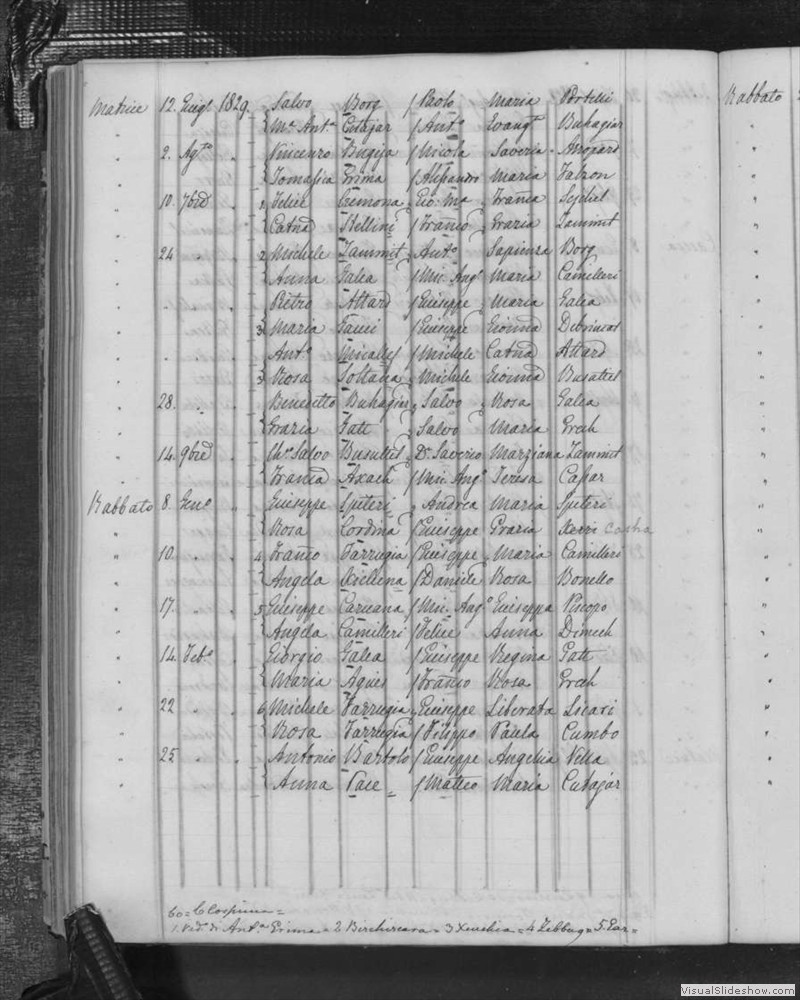 Matrice 12. Lugl. 1829. Salvo Borg f Paolo Maria Portelli Rabbato
" Ma. Anto. Cutajar f Anto. Evangta. Buhagiar
" 2. Agto. " Vincenzo Bugeja f Nicola Saveria
" Tomasica Grima f Alessandro Maria Falzon
" 10. 7bre " 1 Felice Cremona Gio: Ma. Franca
" Catna Stellini f Franco Grazia Zammit
" 24 " " 2 Michele Zammit Anto. Sapienza Borg
" Anna Galea f Mic. Ango. Maria Camilleri
" Pietro Attard f Giuseppe Maria Galea
" 3 Maria Gauci f Giuseppe Giovna Debrincat
" Anto. Micallef f Michele Catna Attard
" 3 Rosa Soltana Michele Giovna Busuttil
" 28. " " Benedetto Buhagiar Salvo Rosa Galea
" Grazia Gatt Salvo Maria Grech
" 14. 9bre " Salvo Busuttil Dr. Saverio Marziana Zammit
" Franca Axach f Mic. Ango. Teresa Caspar
Rabbato 8. Geno. " Giuseppe Spiteri Andrea Maria Spiteri
" Rosa Cordina f Giuseppe Grazia Xerri
" 10 " " 4 Franco Farrugia f Giuseppe Maria Camilleri
" Angela Xicluna f Daniele Rosa Bonello
" 17. " " 5 Giuseppe Caruana f Mic. Ango. Giuseppa Piscopo
" Angela Camilleri f Felice Anna Dimech
" 14. Febo. " Giorgio Galea f Giuseppe Regina Gatt
" Maria Agius f Franco Rosa Grech
" 22 " " 6 Michele Farrugia Giuseppe Liberata Licari
" Rosa Farrugia f Filippo Paola Cumbo
" 25 " " Antonio Bartolo f Giuseppe Angelia Vella
" Anna Pace = f Matteo Maria Cutajar
6o = Cospicua =
1. Vedo. di Anta. Grima = 2 Birchircara = 3 Xeuchia = 4 Zebbug = 5. Gar =
VisualSlideshow.com